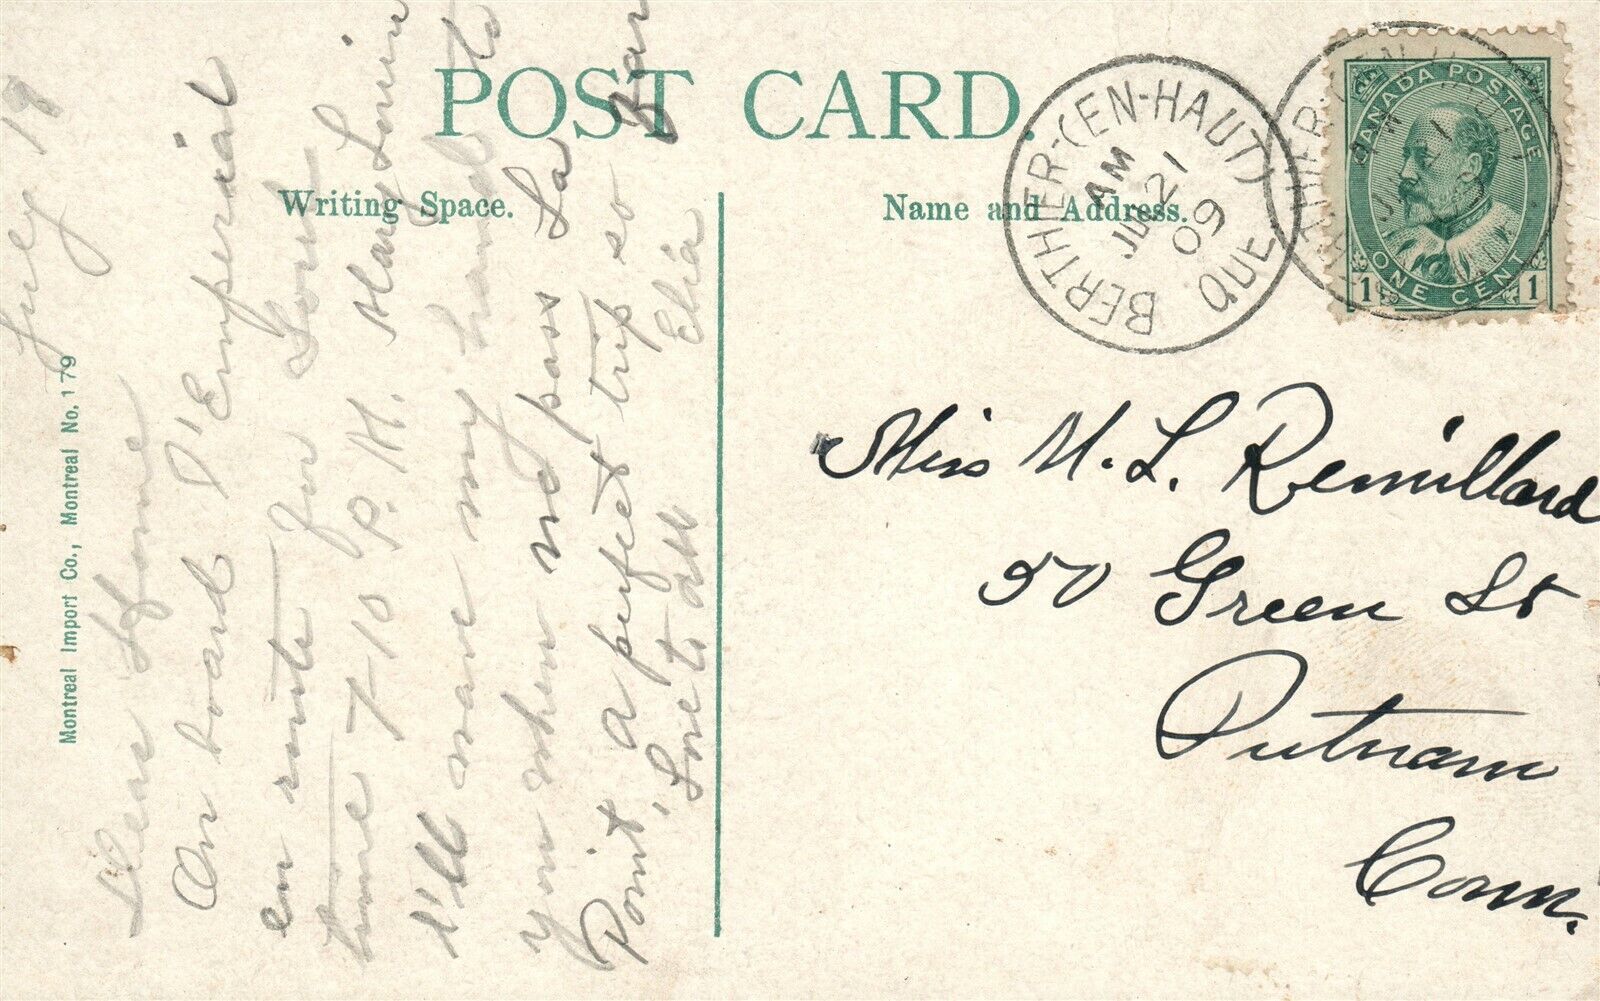 POST CARD.
Writing Space.
Name and Address.
BERTHIER-(EN-HAUT)
AM
JU 21
09
QUE
CANADA POSTAGE
ONE CENT
1 1
Montreal Import Co., Montreal No. 179
July 19
Dear Home
On board D'Emperial
en route for
time 7-10 P.M. Mary Louise
I'll wave my hand to
you when we pass La
Point, a perfect trip so far
Love to all
Miss M. L. Remillard
50 Green St
Putnam
Conn.